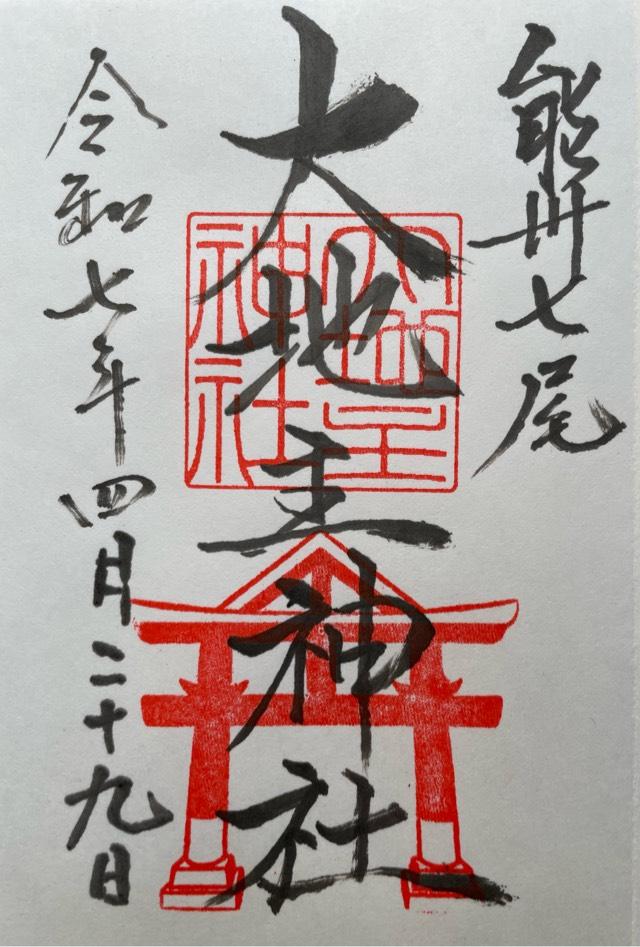 能州七尾
大地主神社
大地主
神社
令和七年四月二十九日